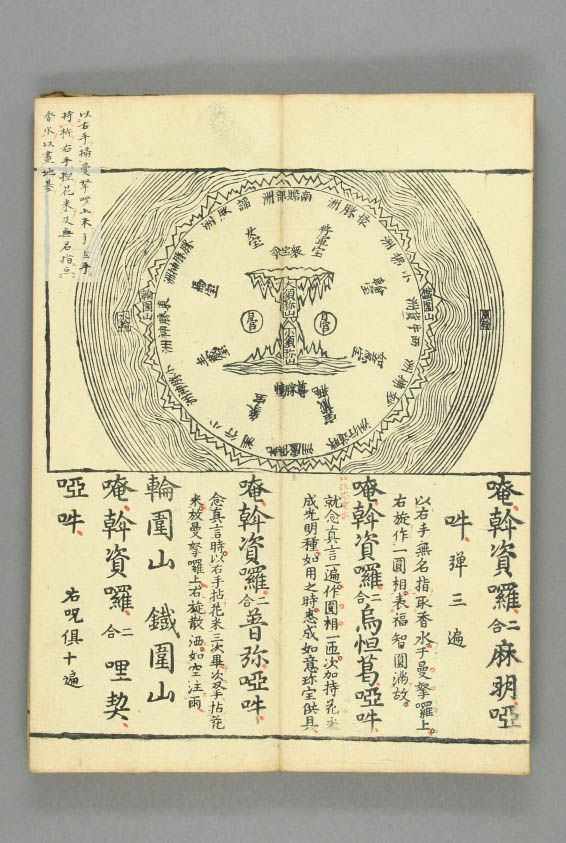 以右手掃曼拏囉上來了左手
持杵右手捏花米及無名指占
香水以畫地基
南贍部洲
最勝洲
小拂洲
西牛貨洲
諂勝道行洲
北俱盧洲
小行洲
東勝神洲
鐵圍山
將軍宝
女宝
眾宝傘
輪宝
須弥山
唵斡資囉二合麻玥啞
吽 彈三遍
以右手無名指取香水于曼拏囉上
右旋作一圓相表福智圓滿故
唵斡資囉二合烏恒葛啞吽
就念真言一遍作圓相一匝次加持花米
成光明種如用之時悉成如意珍宝供具
唵斡資囉二合普弥啞吽
念真言時以右手拈花米三次畢次又手拈花
米放曼拏囉上右旋散洒如空注雨
輪圍山 鐵圍山
唵斡資囉二合哩契
啞吽 右呪俱十遍